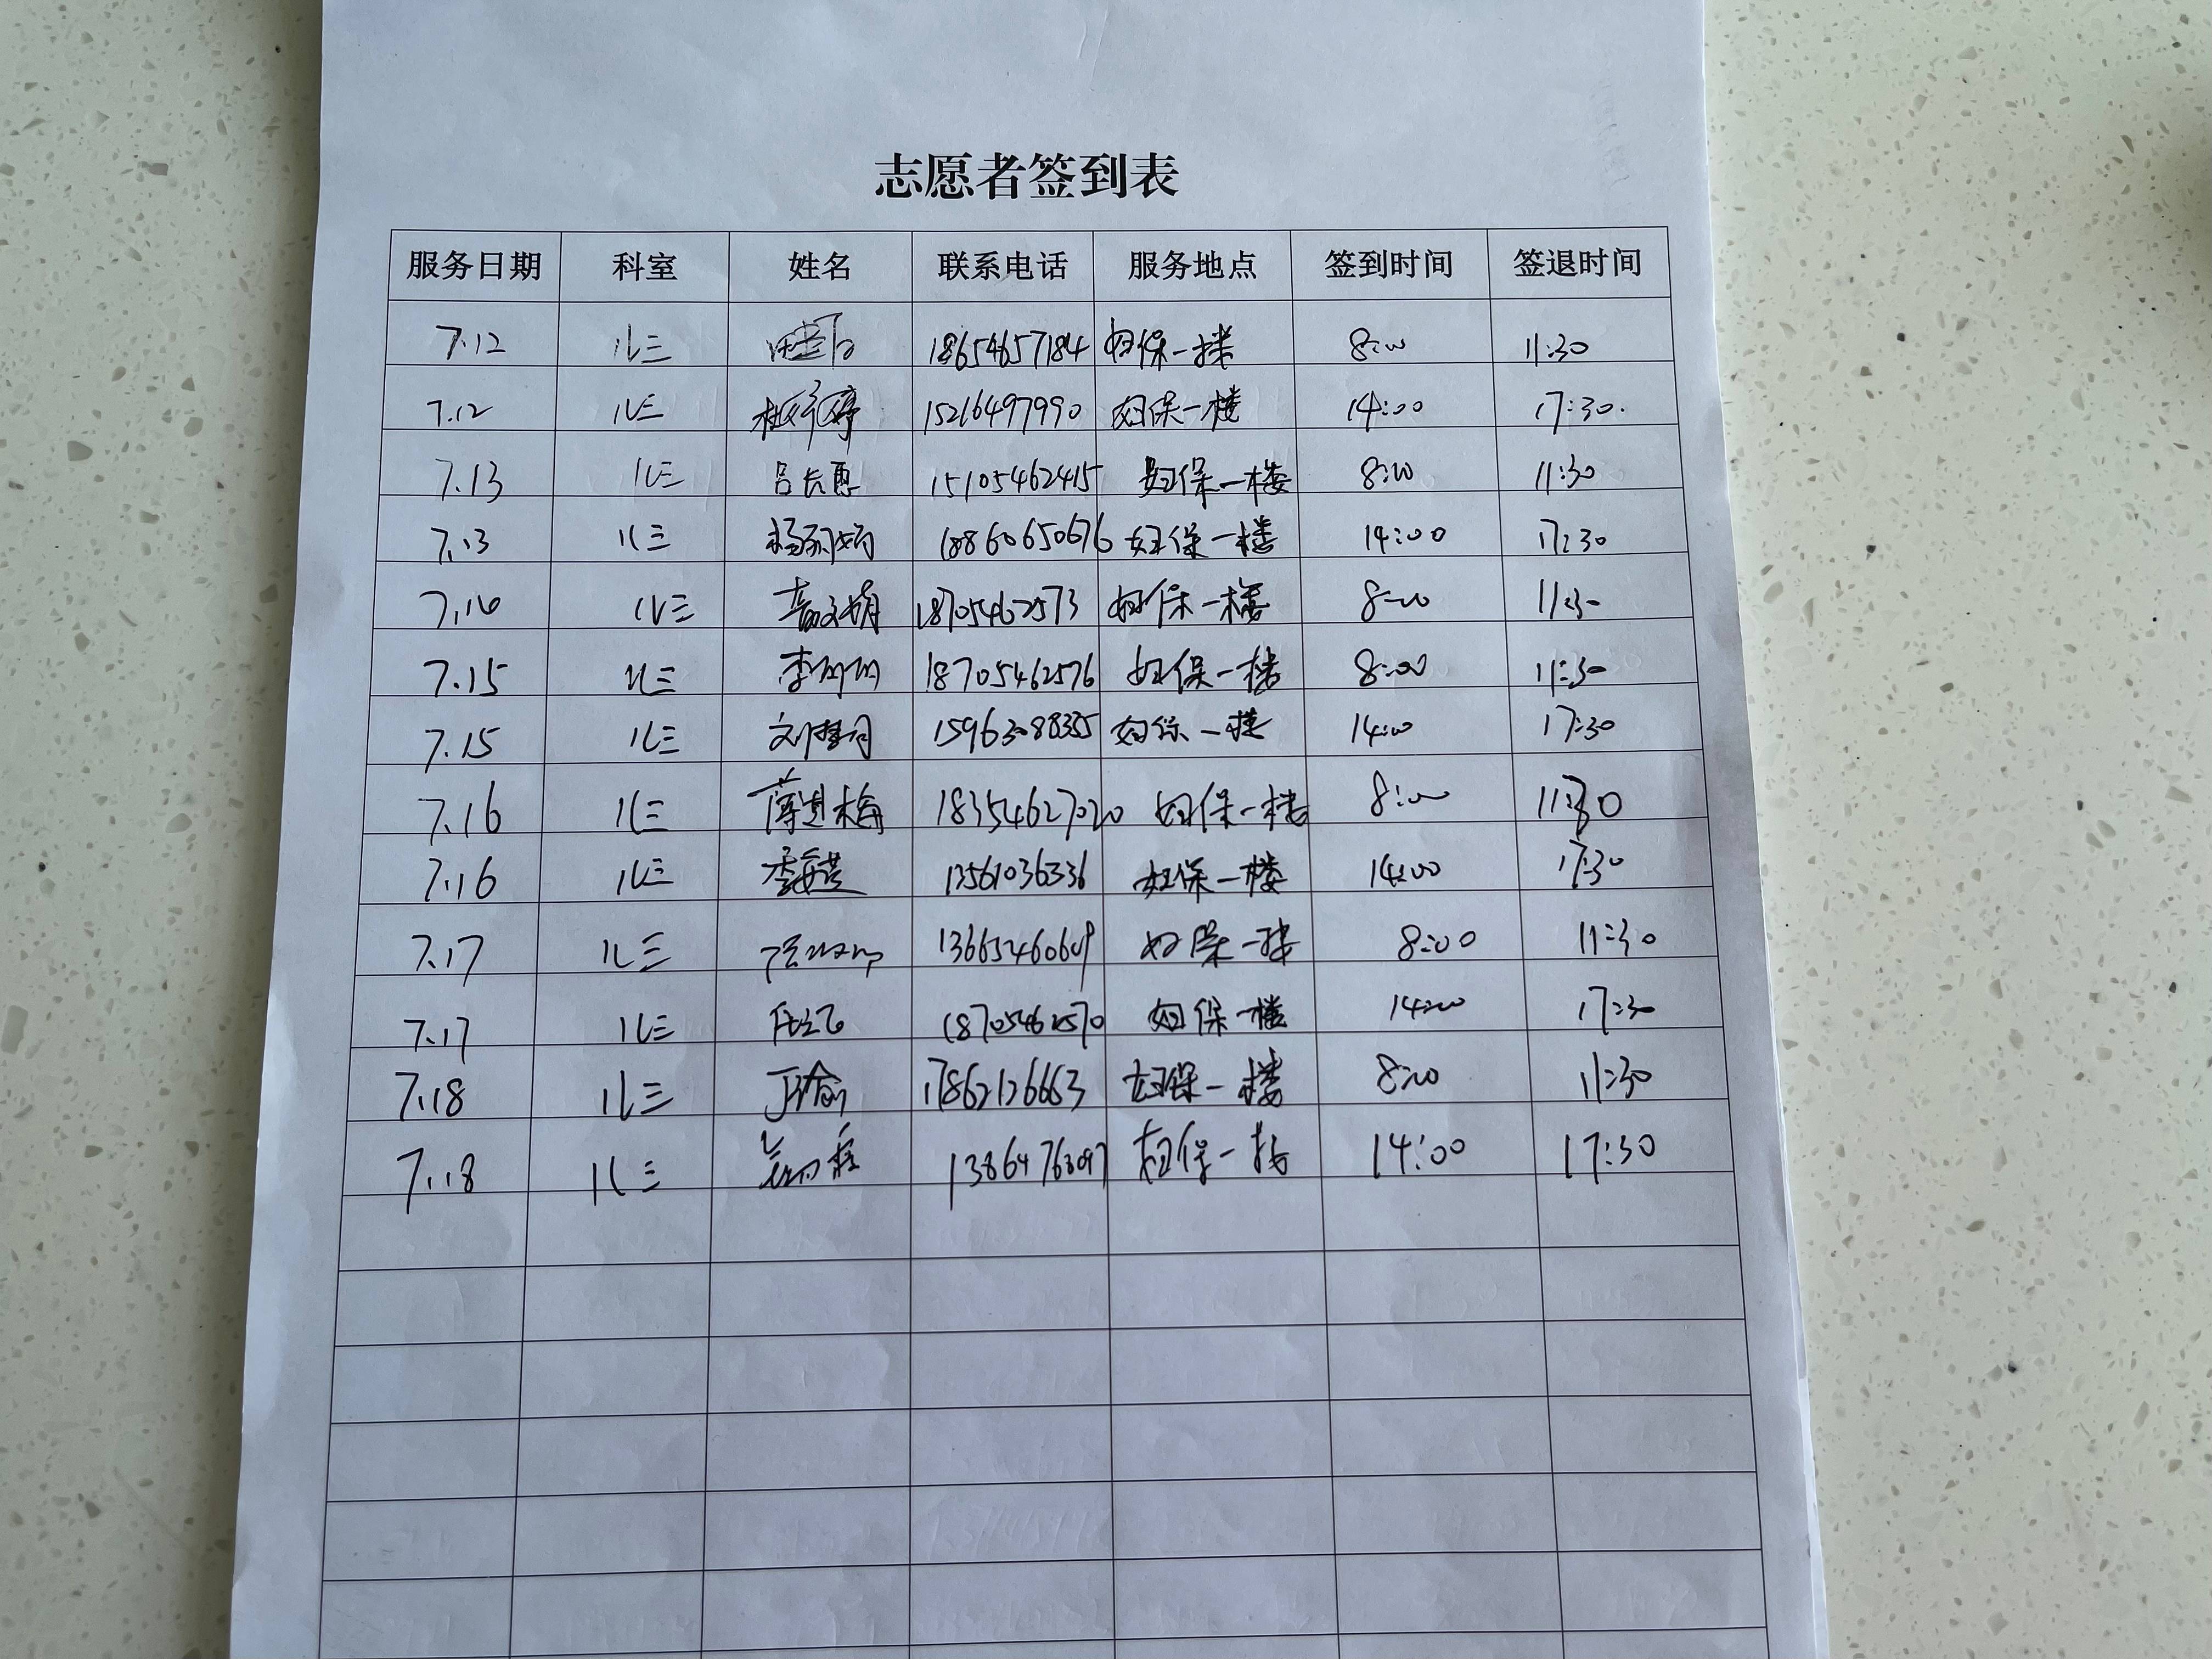 志愿者签到表
服务日期 科室 姓名 联系电话 服务地点 签到时间 签退时间
7.12 儿三 18654657184 妇保一楼 8:00 11:30
7.12 儿三 15216497990 妇保一楼 14:00 17:30.
7.13 儿三 吕长惠 15105462415 妇保一楼 8:00 11:30
7.13 儿三 18860650676 妇保一楼 14:00 17:30
7.14 儿三 18705462573 妇保一楼 8:00 11:30
7.15 儿三 李丽丽 18705462576 妇保一楼 8:00 11:30
7.15 儿三 15963088335 妇保一楼 14:00 17:30
7.16 儿三 薄进梅 18354627020 妇保一楼 8:00 11:30
7.16 儿三 13561036336 妇保一楼 14:00 17:30
7.17 儿三 13665460609 妇保一楼 8:00 11:30
7.17 儿三 18705462570 妇保一楼 14:00 17:30
7.18 儿三 17862126663 妇保一楼 8:00 11:30
7.18 儿三 妇保一楼 14:00 17:30